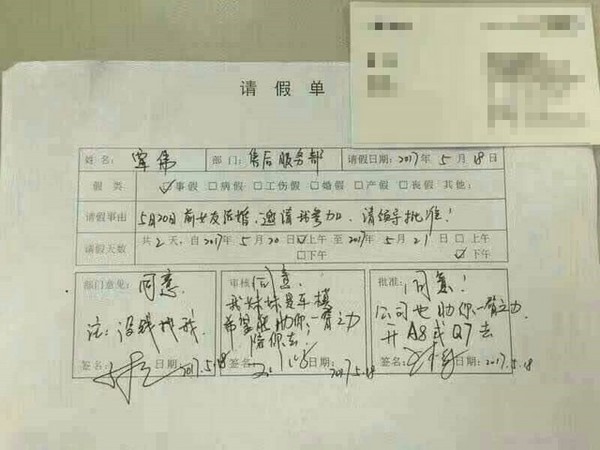 请假单
姓名: 军伟 部门: 售后服务部 请假日期: 2017年5月18日
假类 ☑事假 □病假 □工伤假 □婚假 □产假 □丧假 其他:
请假事由 5月20日前女友结婚.邀请我参加.请领导批准!
请假天数 共2天,自2017年5月20日☑上午 至2017年5月21日□上午
□下午 ☑下午
部门意见: 同意.
注:没钱找我.
签名: 日期: 2017.5.18
审核 同意.
我妹妹是车模
希望能助你一臂之力
陪你去.
签名: 日期: 2017.5.18
批准: 同意!
公司也助你一臂之力
开A8或Q7去
签名: 日期: 2017.5.18